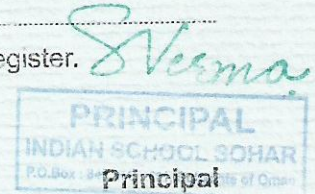 egister.
SVerma
PRINCIPAL
INDIAN SCHOOL SOHAR
P.O.Box : of Oman
Principal